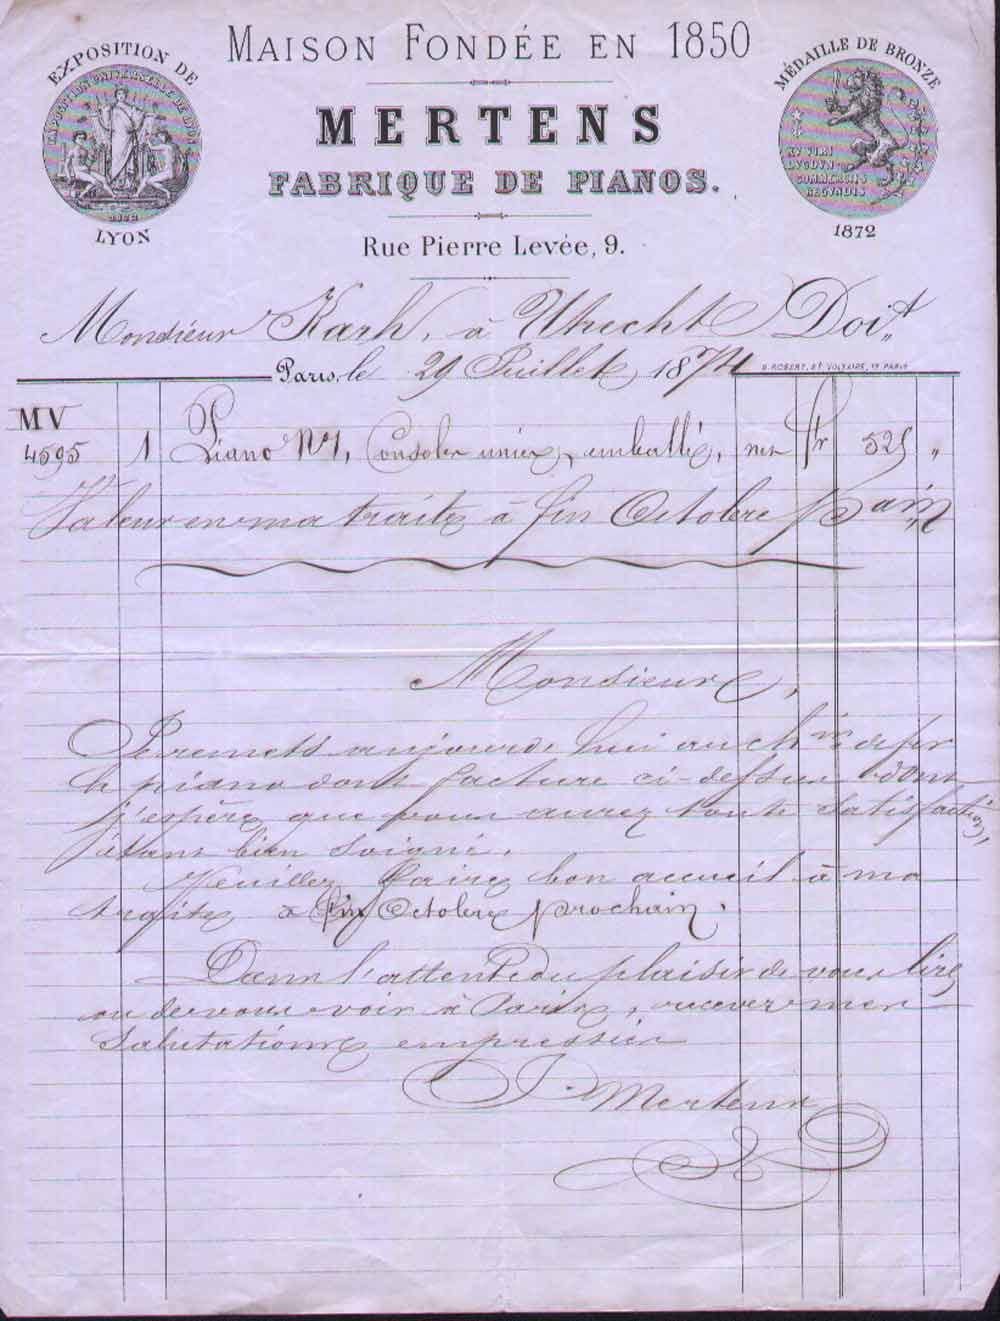 MAISON FONDÉE EN 1850
EXPOSITION DE
EXPOSITION UNIVERSELLE DE LYON
1872
LYON
MERTENS
FABRIQUE DE PIANOS.
MÉDAILLE DE BRONZE
LUGDUN.
COMMERCIIS
REGUNDIS
1872
Rue Pierre Levée, 9.
Monsieur Karh, à Utrecht Doit
Paris, le 29 Juillet 1874
MV
4595 1 Piano N°1, Consoles unies, emballé, net fr 525 "
Valeur en ma traite à fin Octobre
Monsieur,
Je remets aujourd'hui au ch.in de fer
le piano dont facture ci-dessus dont
j'espère que vous aurez toute satisfaction,
étant bien soigné.
Veuillez faire bon accueil à ma
traite à fin Octobre prochain.
Dans l'attente du plaisir de vous lire
ou de vous voir à Paris, recevez mes
salutations empressées
J. Mertens